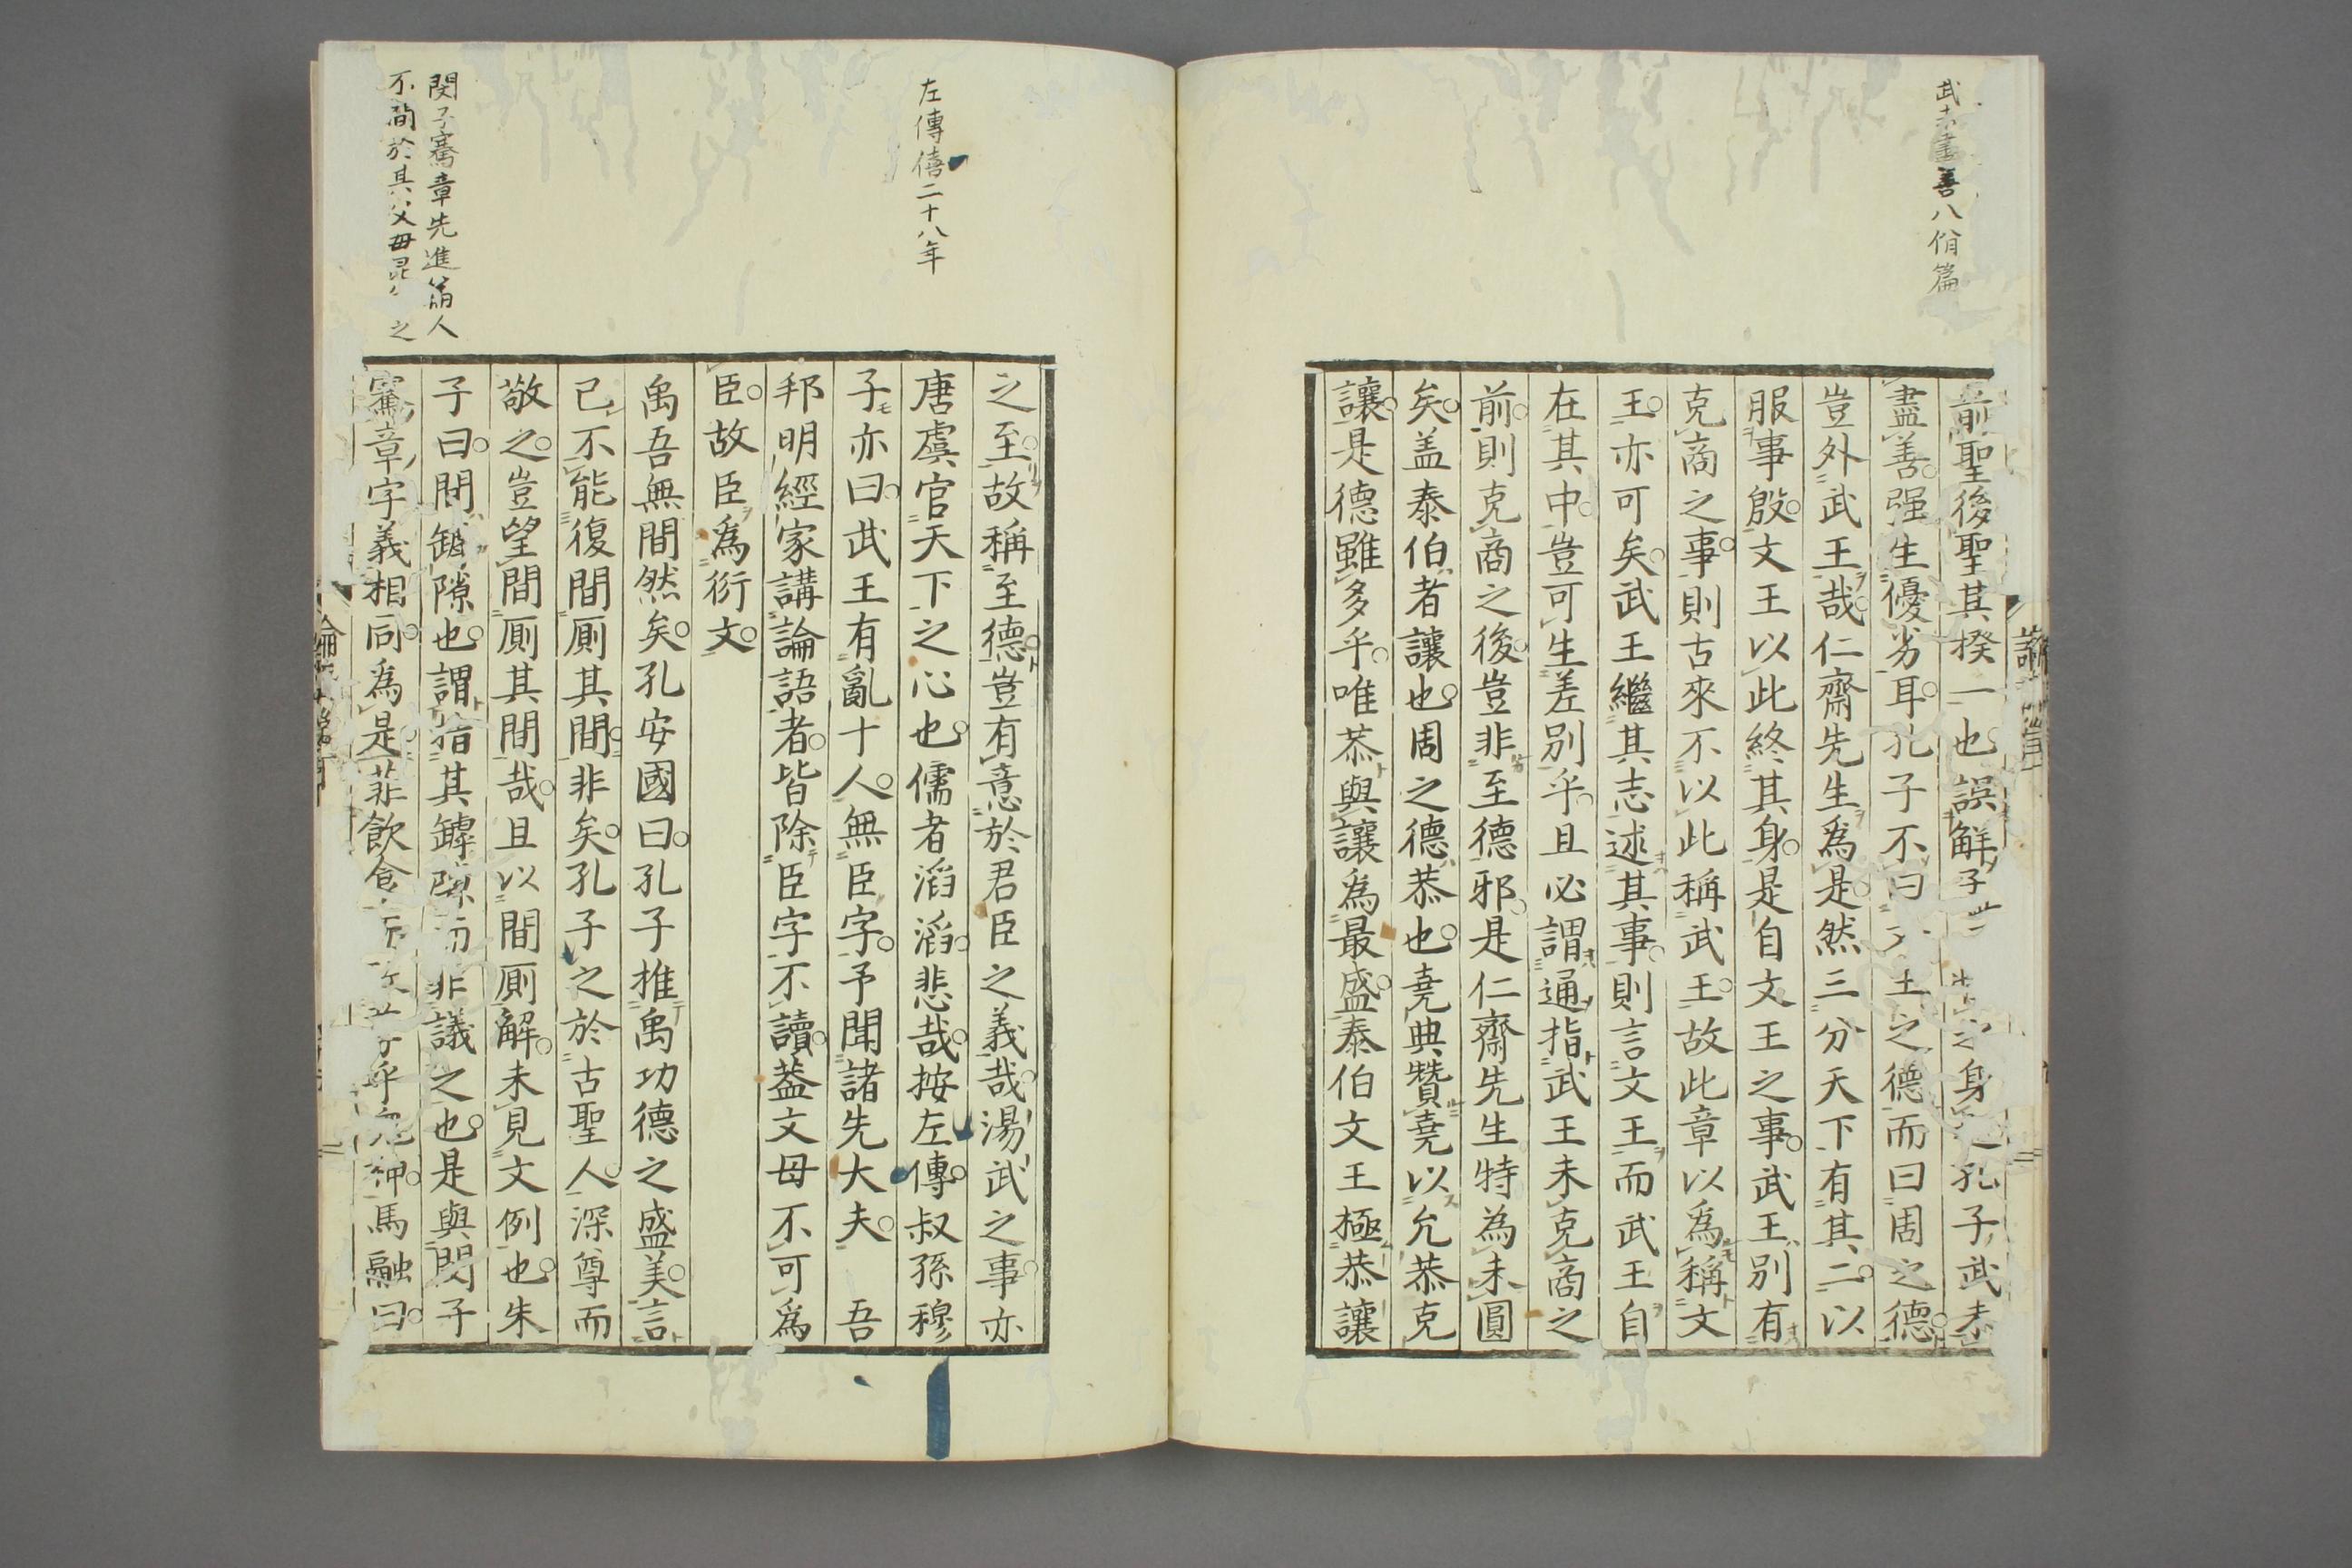 武未盡善八佾篇
前聖後聖其揆一也誤解子 身 孔子武未
盡善强生優劣耳孔子不曰 王之德而曰周之德
豈外武王哉仁齋先生爲是然三分天下有其二以
服事殷文王以此終其身是自文王之事武王別有
克商之事則古來不以此稱武王故此章以爲稱文
王亦可矣武王繼其志述其事則言文王而武王自
在其中豈可生差別乎且必謂通指武王未克商之
前則克商之後豈非至德邪是仁齋先生特為未圓
矣盖泰伯者讓也周之德恭也堯典贊堯以允恭克
讓是德雖多乎唯恭與讓爲最盛泰伯文王極恭讓
左傳僖二十八年
閔子騫章先進篇人
不間於其父母昆 之
之至故稱至德豈有意於君臣之義哉湯武之事亦
唐虞官天下之心也儒者滔滔悲哉按左傳叔孫穆
子亦曰武王有亂十人無臣字予聞諸先大夫 吾
邦明經家講論語者皆除臣字不讀葢文母不可爲
臣故臣爲衍文
禹吾無間然矣孔安國曰孔子推禹功德之盛美言
已不能復間厠其間非矣孔子之於古聖人深尊而
敬之豈望間厠其間哉且以間厠解未見文例也朱
子曰間罅隙也謂指其罅隙而非議之也是與閔子
騫章字義相同爲是菲飲食 乎鬼神馬融曰